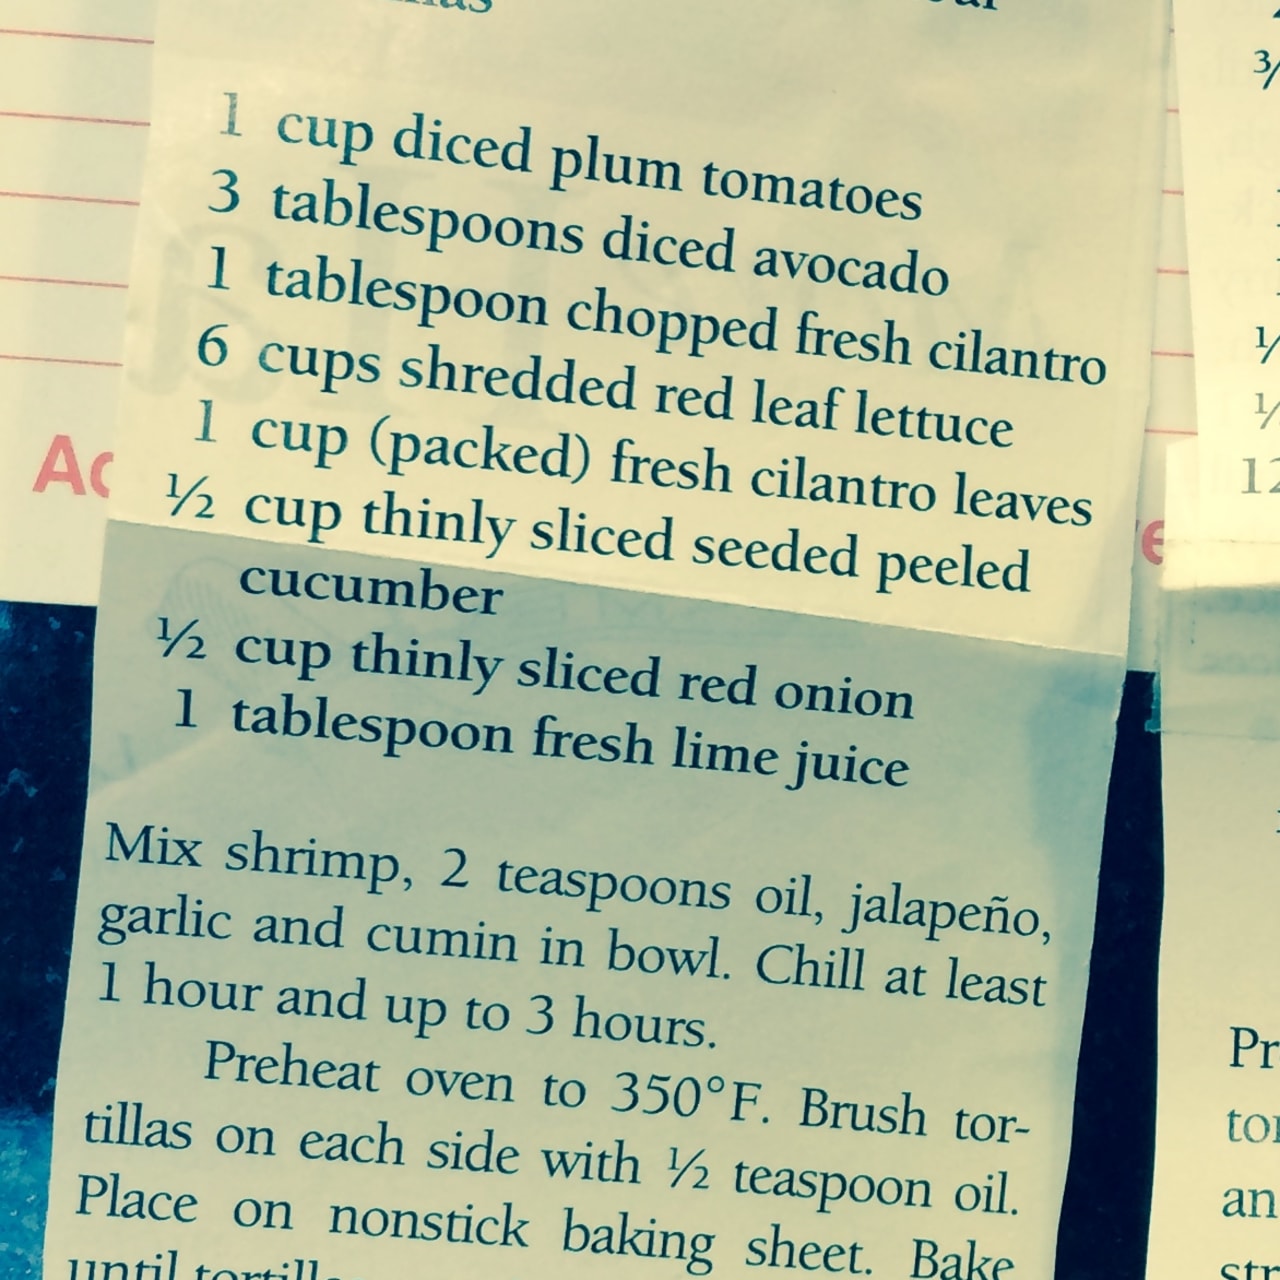 1 cup diced plum tomatoes
3 tablespoons diced avocado
1 tablespoon chopped fresh cilantro
6 cups shredded red leaf lettuce
1 cup (packed) fresh cilantro leaves
½ cup thinly sliced seeded peeled
cucumber
½ cup thinly sliced red onion
1 tablespoon fresh lime juice
Mix shrimp, 2 teaspoons oil, jalapeño,
garlic and cumin in bowl. Chill at least
1 hour and up to 3 hours.
Preheat oven to 350°F. Brush tor-
tillas on each side with ½ teaspoon oil.
Place on nonstick baking sheet. Bake
until